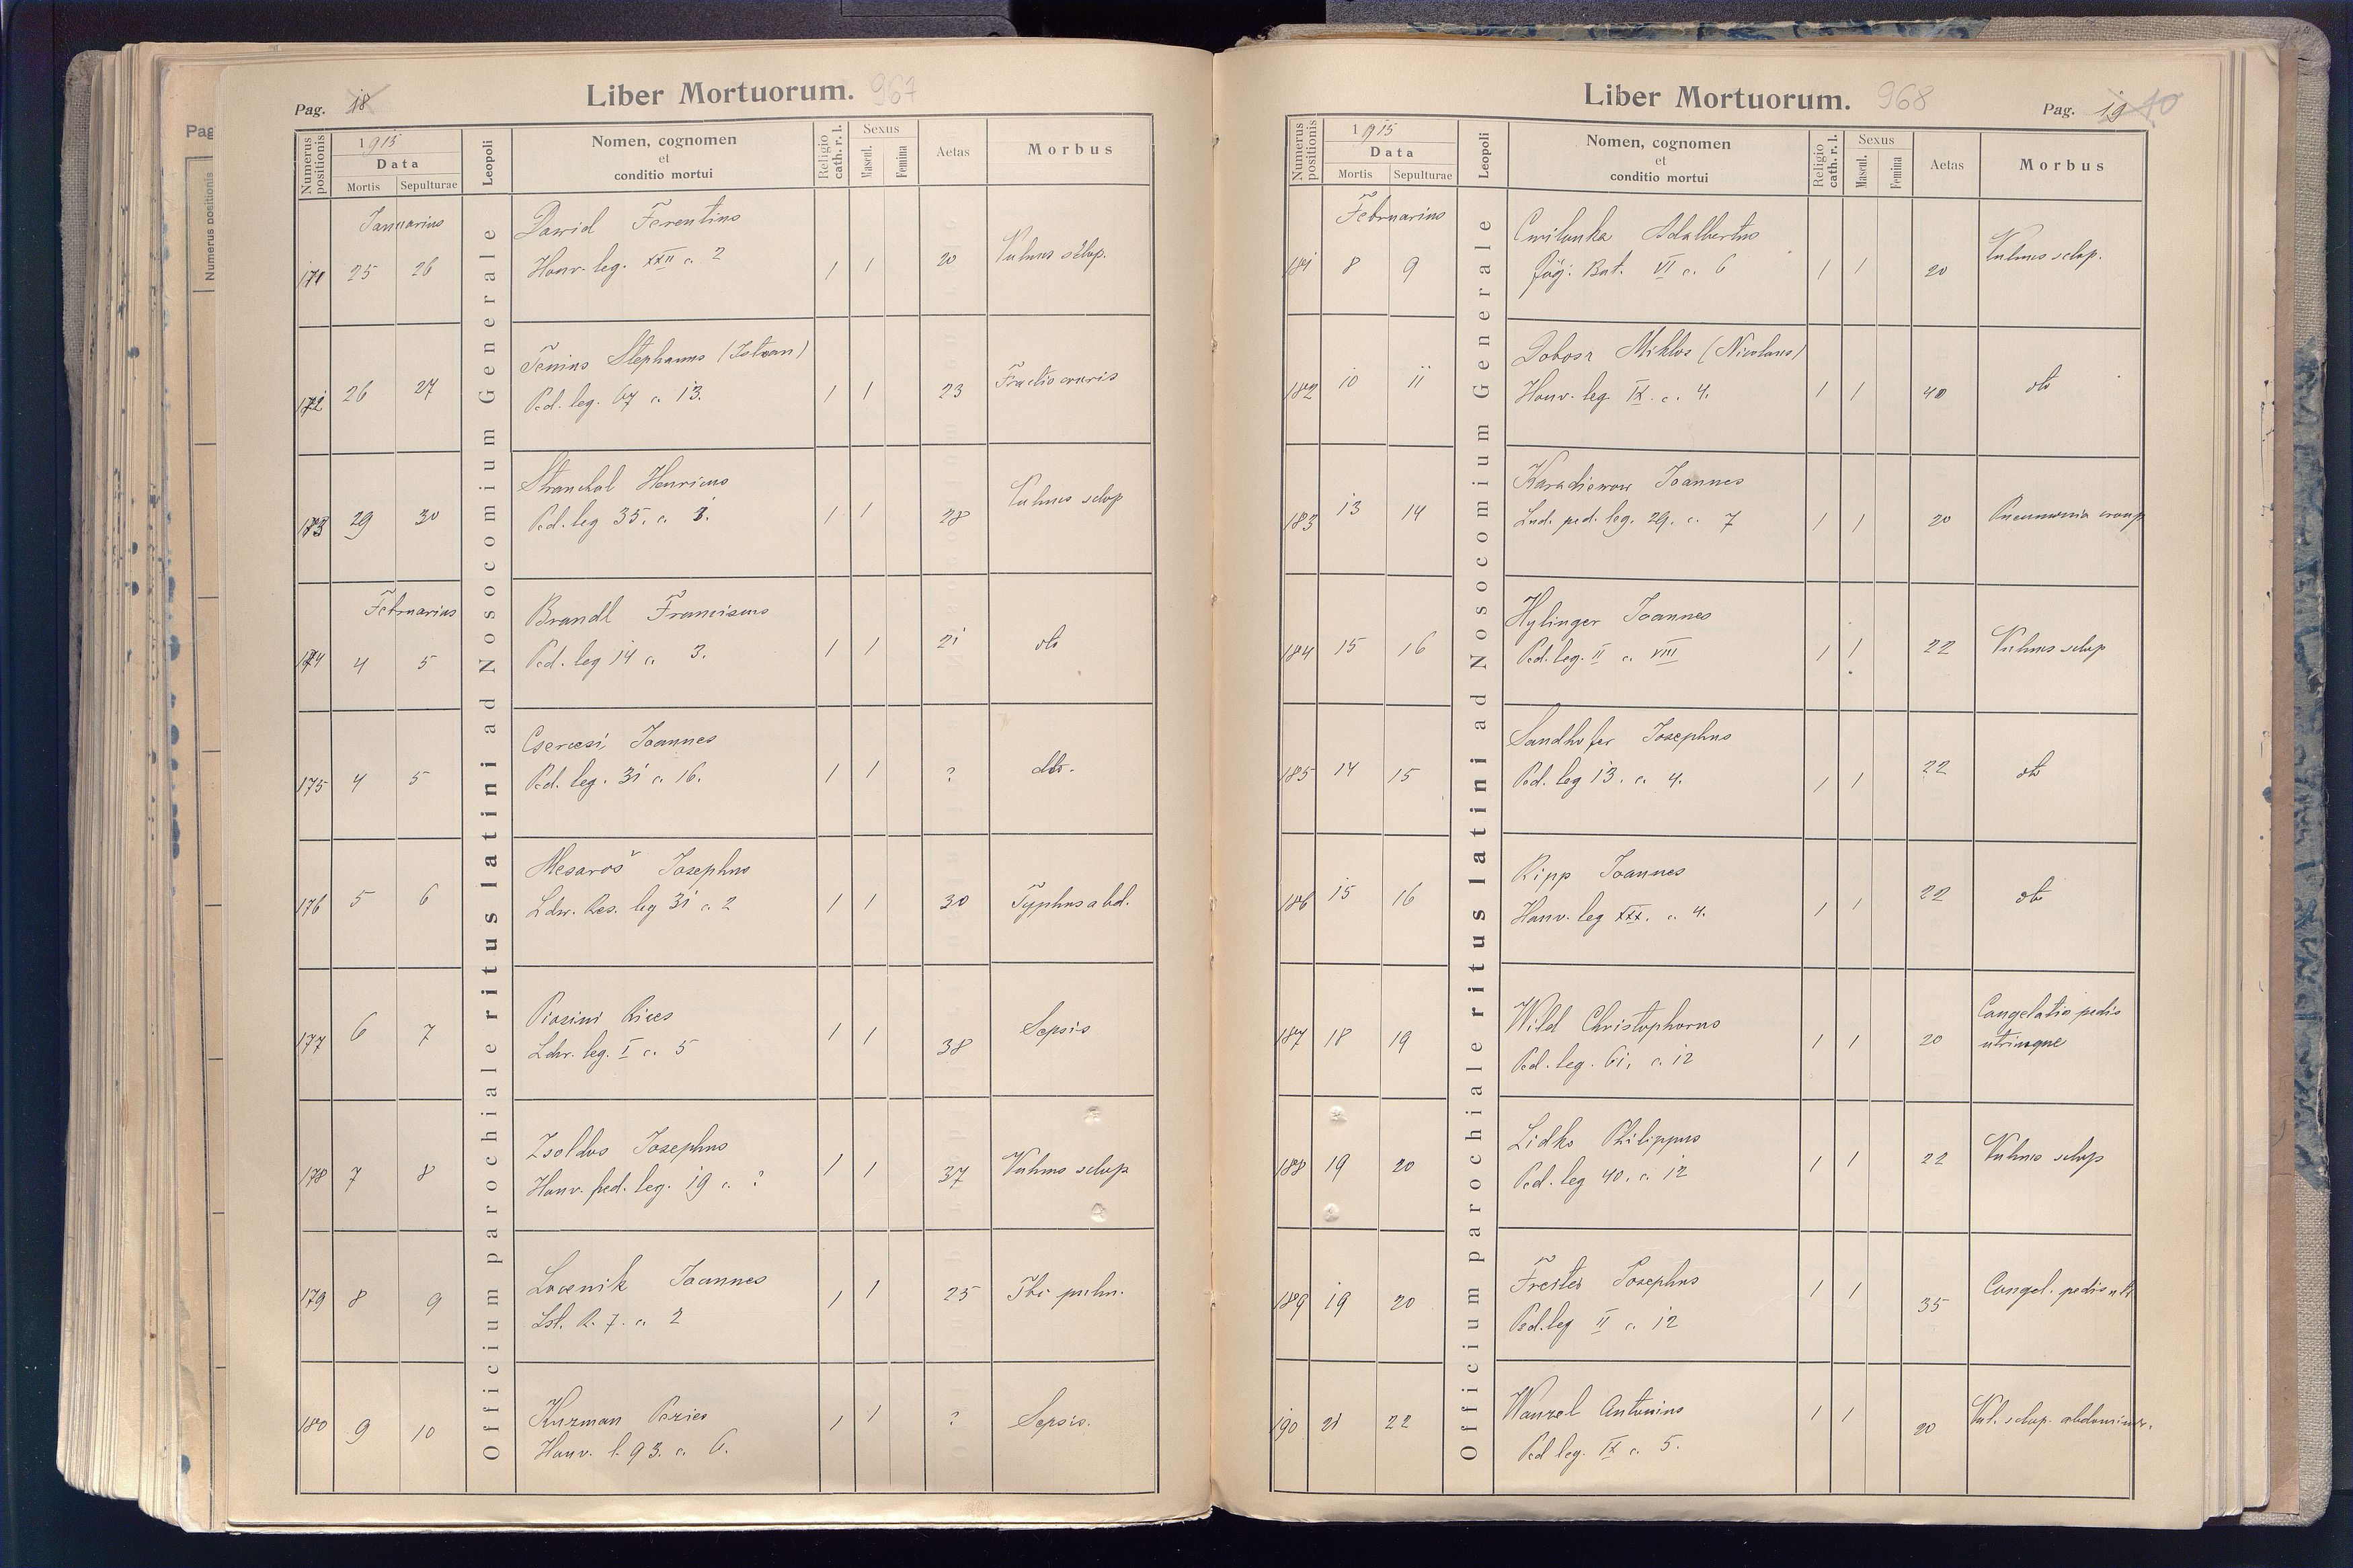 Liber Mortuorum. 967
Pag. 18
Numerus positionis
1915
Data
Mortis
Sepulturae
Leopoli
Nomen, cognomen
et
conditio mortui
Religio
cath. r. l.
Sexus
Mascul.
Femina
Aetas
Morbus
Officium parochiale ritus latini ad Nosocomium Generale
Januarius
171 25 26 Dawid Ferentino 1 1 20 Vulnus sclop.
Honv. leg. XXII c. 2
172 26 27 Stephanus (Istvan) 1 1 23 Fractio cruris
Ped. leg. 67 c. 13.
173 29 30 Stranchal Henricus 1 1 28 Vulnus sclop
Ped. leg 35. c. 3.
Februarius
174 4 5 Brandl Franciscus 1 1 21 dto
Ped. leg 14 c. 3.
175 4 5 Joannes 1 1 ? dto.
Ped. leg. 31 c. 16.
176 5 6 Mesaroš Josephus 1 1 30 Typhus abd.
Ldw. Res. leg 31 c. 2
177 6 7 1 1 38 Sepsis
Ldw. leg. I c. 5
178 7 8 Zsoldos Josephus 1 1 37 Vulnus sclop
Honv. ped. leg. 19 c. ?
179 8 9 Joannes 1 1 25 Tbc pulm.
Lst. R. 7. c. 2
180 9 10 Kuzman 1 1 ? Sepsis.
Honv. l. 93. c. 6.
Liber Mortuorum. 968
Pag. 19
Numerus positionis
1915
Data
Mortis
Sepulturae
Leopoli
Nomen, cognomen
et
conditio mortui
Religio
cath. r. l.
Sexus
Mascul.
Femina
Aetas
Morbus
Officium parochiale ritus latini ad Nosocomium Generale
Februarius
181 8 9 Adalbertus 1 1 20 Vulnus sclop.
Jäg: Bat. VI c. 6
182 10 11 Dobosz Miklos (Nicolaus) 1 1 40 dto
Honv. leg IX. c. 4.
183 13 14 Joannes 1 1 20 Pneumonia croup
Lnd. ped. leg. 29. c. 7
184 15 16 Hylinger Joannes 1 1 22 Vulnus sclop
Ped. leg. II c. VIII
185 14 15 Sandhofer Josephus 1 1 22 dto
Ped. leg 13. c. 4.
186 15 16 Ripp Joannes 1 1 22 dto
Honv. leg XXX. c. 4.
187 18 19 Wild Christophorus 1 1 20 Congelatio pedis
utrinque
Ped. leg. 61, c. 12
188 19 20 Lidko Philippus 1 1 22 Vulnus sclop
Ped. leg 40. c. 12
189 19 20 Josephus 1 1 35 Congel. pedis utr
Ped. leg II c. 12
190 21 22 Wanzel Antonius 1 1 20 Vul. sclop. abdominis.
Ped leg. IX c. 5.